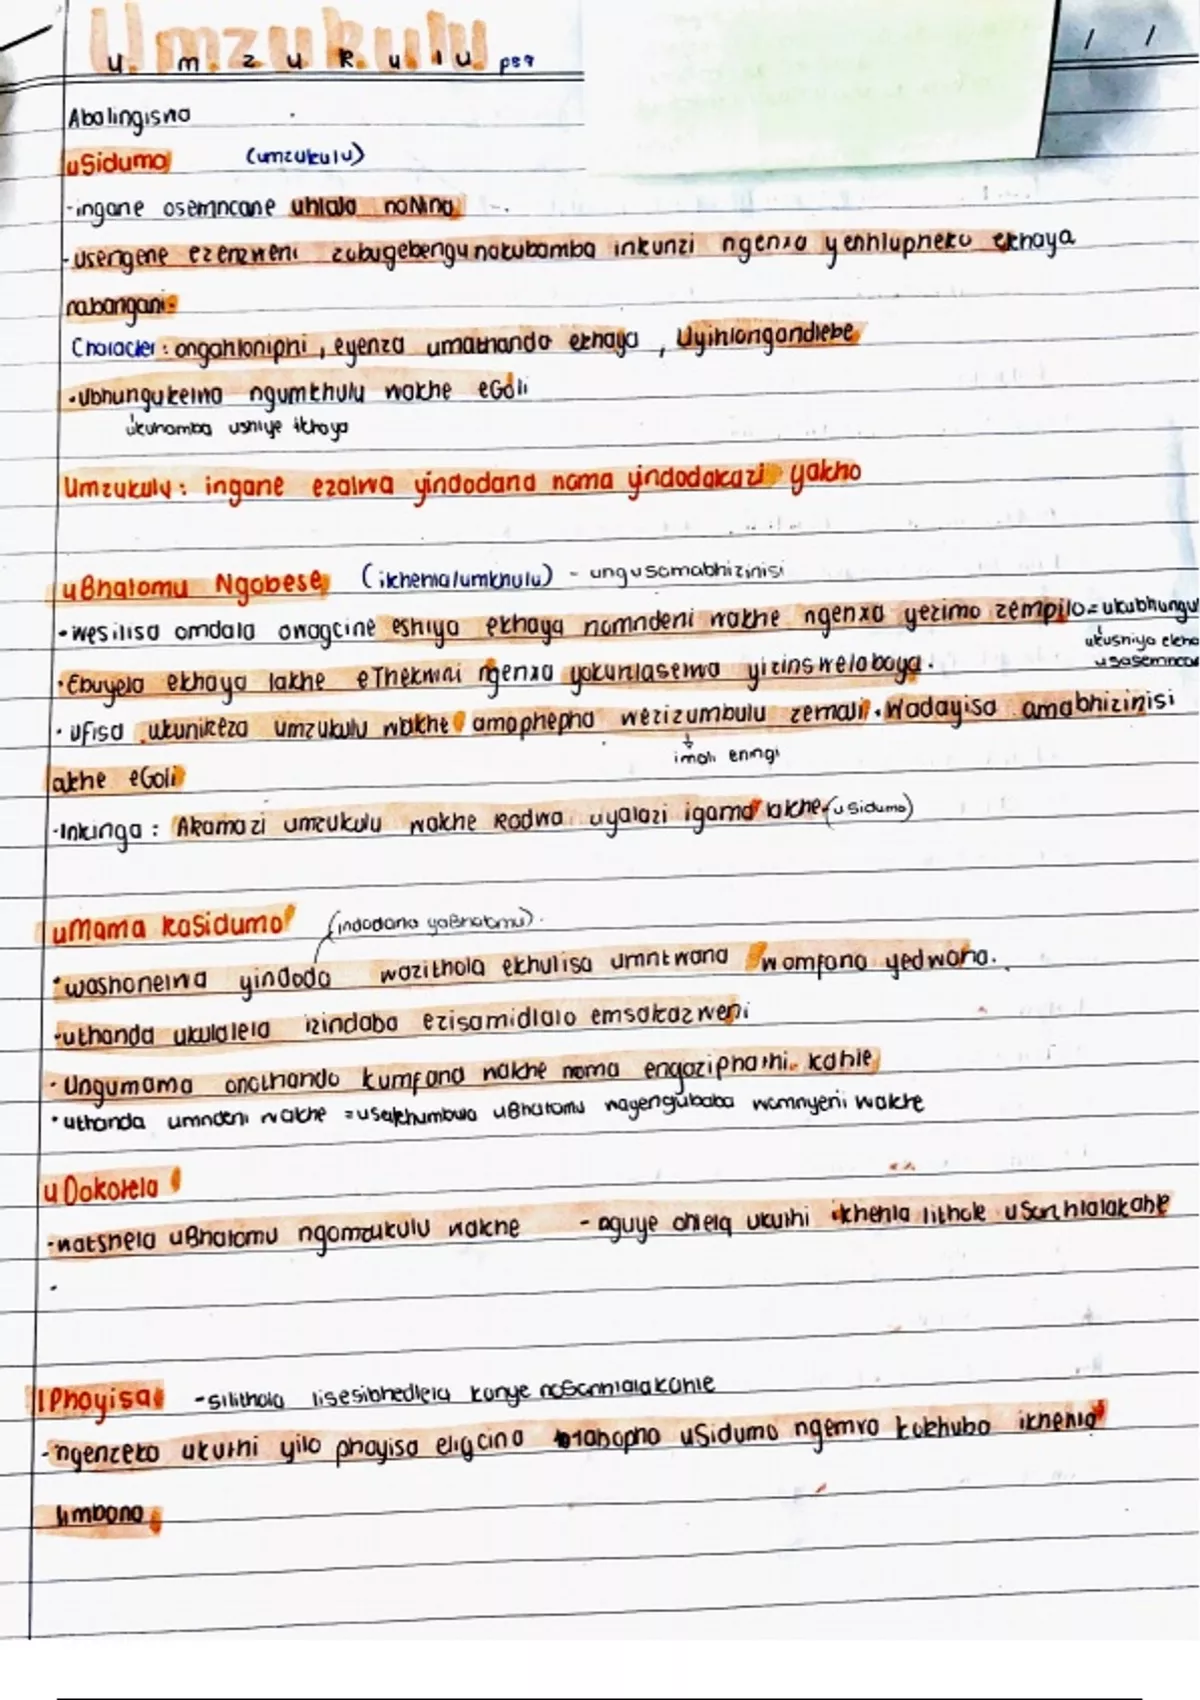 Umzukulu
u m z u k u l u pg 9
Abalingiswa
uSidumo (umzukulu)
-ingane osemncane uhlala noNina
-usengene ezenzweni zobugebengu nokubamba inkunzi ngenxa yenhlupheko ekhaya
nabangani
Character: ongahloniphi, eyenza umathanda ekhaya, Uyihlongandlebe
•Ubhungukelwa ngumkhulu wakhe eGoli
ukuhamba ushiye ikhaya
Umzukulu: ingane ezalwa yindodana noma yindodakazi yakho
uBhatomu Ngobese (ikhehla/umkhulu) - ungusomabhizinisi
•wesilisa omdala owagcine eshiya ekhaya nomndeni wakhe ngenxa yezimo zempilo= ukubhungu
ukushiya
usasemncane
•Ebuyela ekhaya lakhe eThekwini ngenxa yokuhlaselwa yizinswelaboya.
•ufisa ukunikeza umzukulu wakhe amaphepha wezizumbulu zemali. Wadayisa amabhizinisi
imali eningi
akhe eGoli
-Inkinga: Akamazi umzukulu wakhe kodwa uyalazi igama lakhe (uSidumo)
uMama kaSidumo (indodana yaBhatomu).
•washonelwa yindoda wazithola ekhulisa umntwana womfana yedwana.
-uthanda ukulalela izindaba ezisamidlalo emsakazweni
•Ungumama onothando kumfana wakhe noma engaziphathi kahle
•uthanda umndeni wakhe =usakhumbula uBhatomu nayengubaba womnyeni wakhe
uDokotela
-watshela uBhatomu ngomzukulu wakhe - nguye ohlela ukuthi ikhehla lithole uSonhlalakahle
.
IPhoyisa -silithola lisesibhedlela kanye noSonhlalakahle
-ngenzeko ukuthi yilo phoyisa eligcina labopha uSidumo ngemva kokhuba ikhehla
limbona